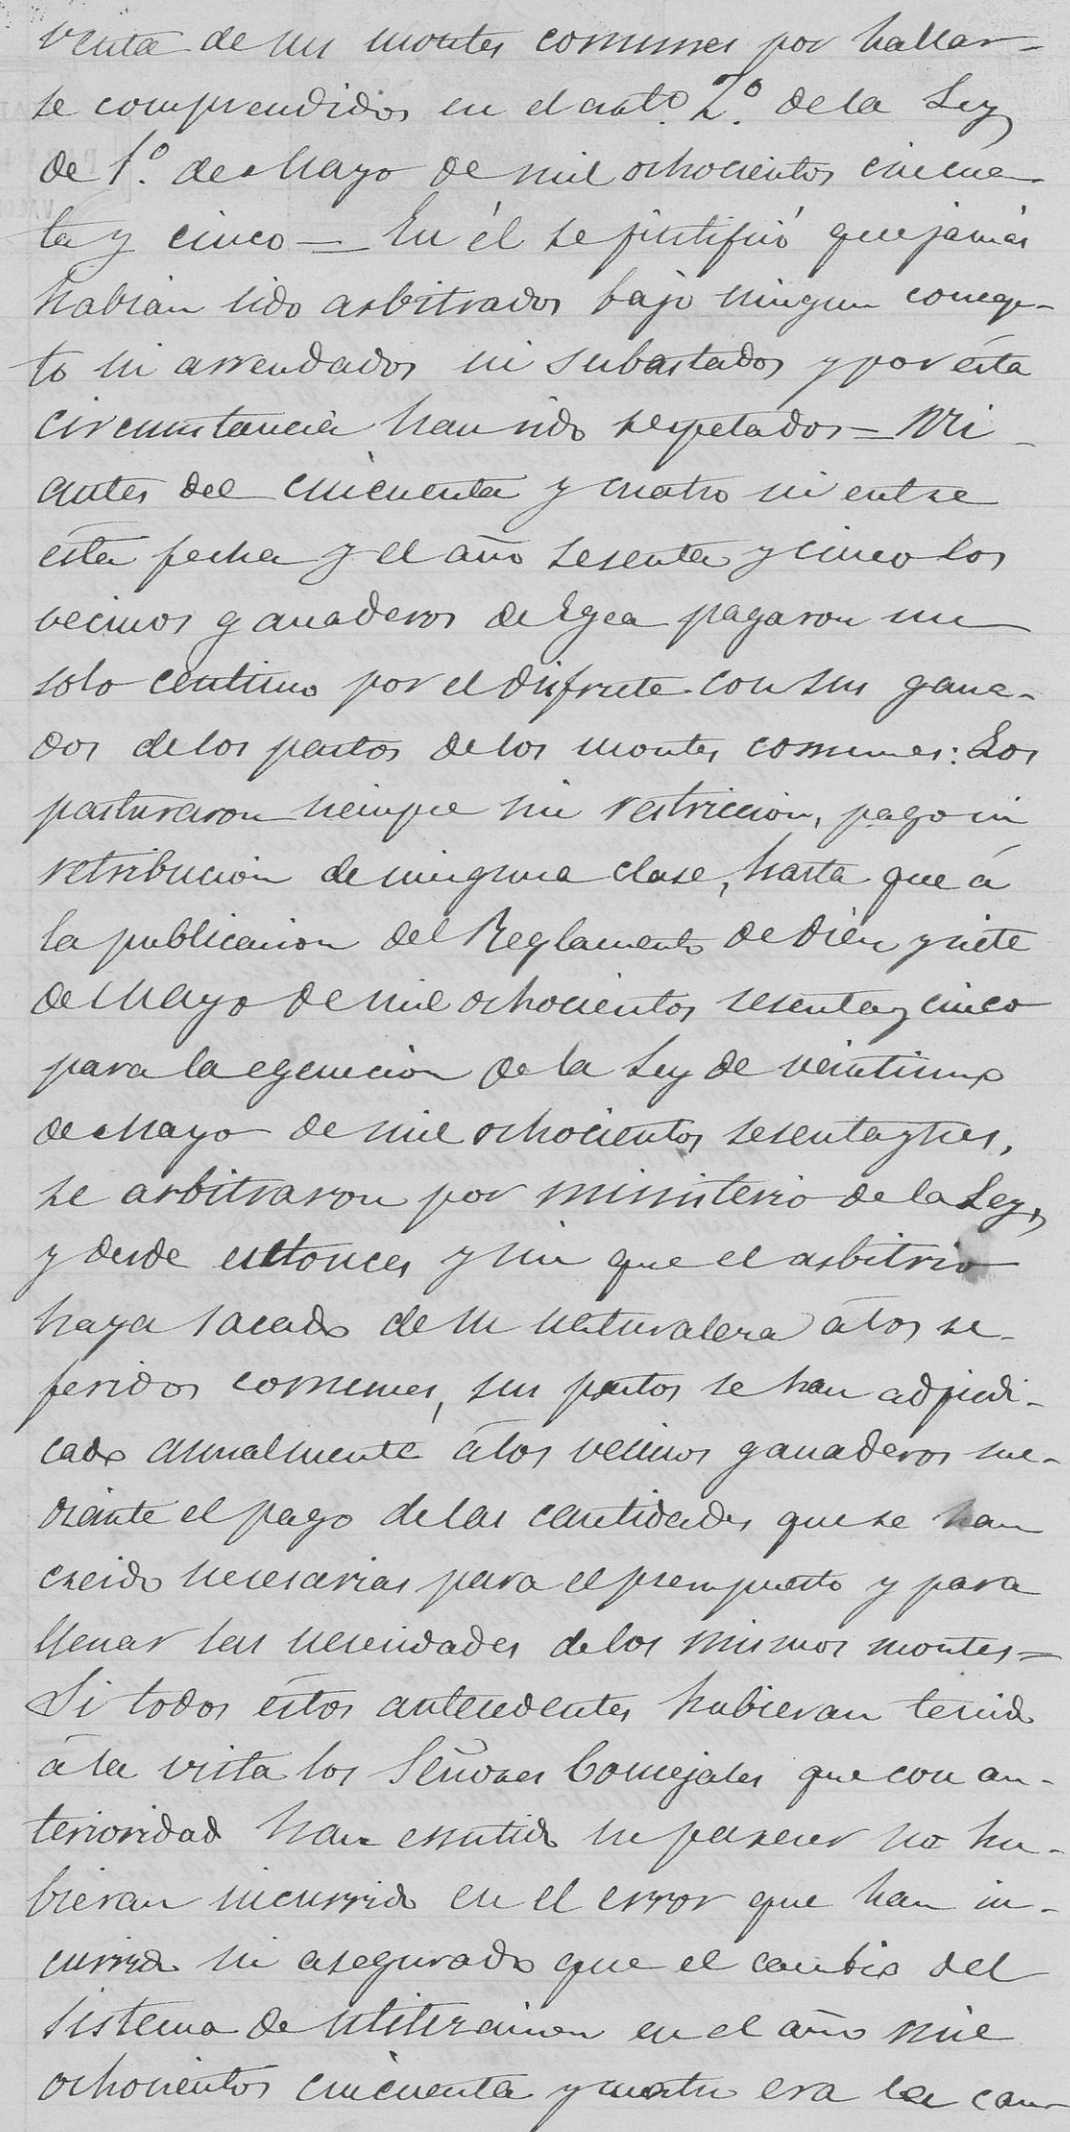 venta de sus montes comunes por hallar-
se comprendidos en el art.º 2.º de la Ley
de 1.º de Mayo de mil ochocientos cincuen-
ta y cinco = En él se justificó que jamás
habian sido arbitrados bajo ningun concep-
to ni arrendados ni subastados y por ésta
circunstancia han sido respetados = Ni
antes del cincuenta y cuatro ni entre
ésta fecha y el año sesenta y cinco los
vecinos ganaderos de Egea pagaron un
solo centimo por el disfrute con sus gana-
dos de los pastos de los montes comunes: Los
pasturaron siempre sin restriccion, pago ni
retribucion de ninguna clase, hasta que á
la publicacion del Reglamento de diez y siete
de Mayo de mil ochocientos sesenta y cinco
para la egecucion de la Ley de veinticuatro
de Mayo de mil ochocientos sesenta y tres,
se arbitraron por ministerio de la Ley,
y desde entonces y sin que el arbitrio
haya sacado de su naturaleza á los re-
feridos comunes, sus pastos se han adjudi-
cado anualmente á los vecinos ganaderos me-
diante el pago de las cantidades que se han
creido necesarias para el presupuesto y para
llenar las necesidades de los mismos montes =
Si todos éstos antecedentes hubieran tenido
á la vista los Señores Concejales que con an-
terioridad han emitido su parecer no hu-
bieran incurrido en el error que han in-
currido ni asegurado que el cambio del
sistema de utilizacion en el año mil
ochocientos cincuenta y cuatro era la cau-